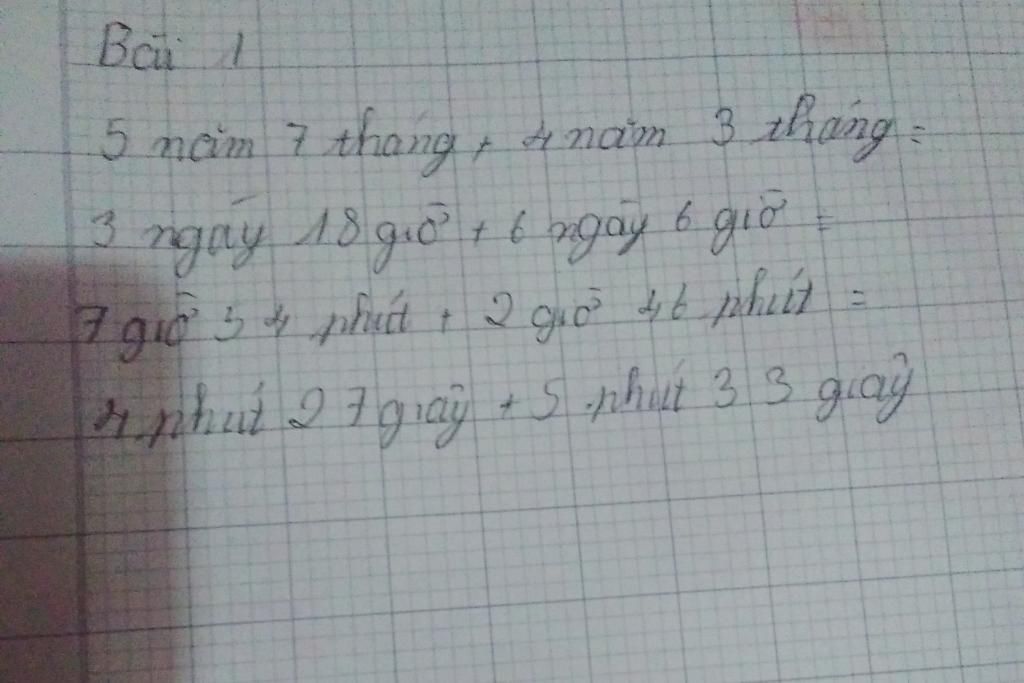 Bài 1
5 năm 7 tháng + 4 năm 3 tháng =
3 ngày 18 giờ + 6 ngày 6 giờ =
7 giờ 34 phút + 2 giờ 46 phút =
4 phút 27 giây + 5 phút 33 giây